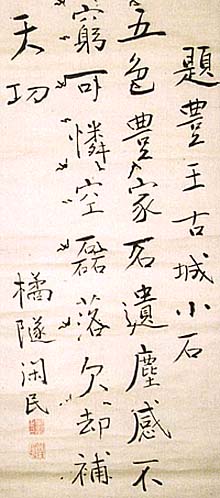 題豊王古城小石
五色豊家石遺塵感不
窮可憐空磊落欠却補
天功
橘隧閑民